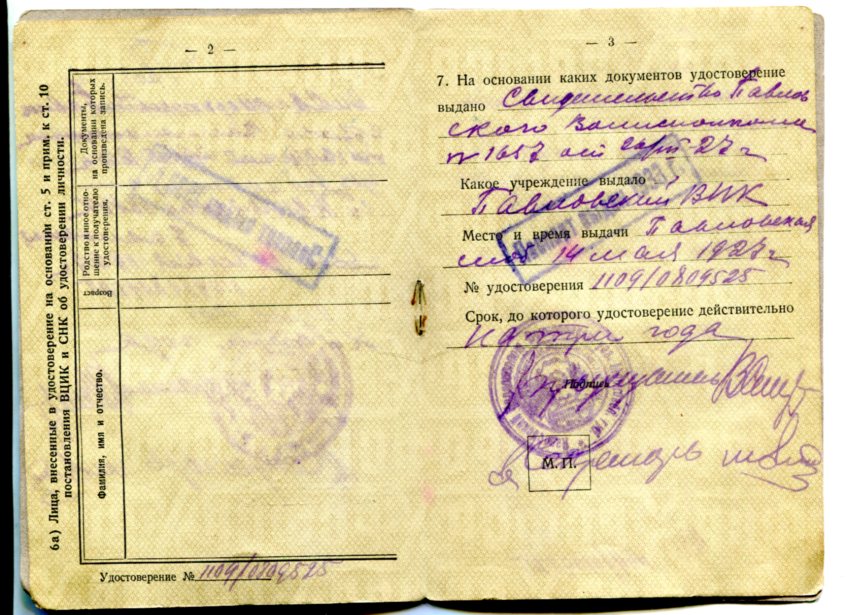 — 2 —
6а) Лица, внесенные в удостоверение на основании ст. 5 и прим. к ст. 10
постановления ВЦИК и СНК об удостоверении личности.
Фамилия, имя и отчество.
Возраст
Родство и иное отно-
шение к получателю
удостоверения.
Документы,
на основании которых
произведена запись.
Удостоверение № 1109/0809525
— 3 —
7. На основании каких документов удостоверение
выдано Свидетельство Павлов
ского Волисполкома
№ 1657 от 27 г
Какое учреждение выдало
Павловский ВИК
Место и время выдачи Павловская
14 мая 1927 г
№ удостоверения 1109/0809525
Срок, до которого удостоверение действительно
на три года
Подпись
М. П.
Секретарь